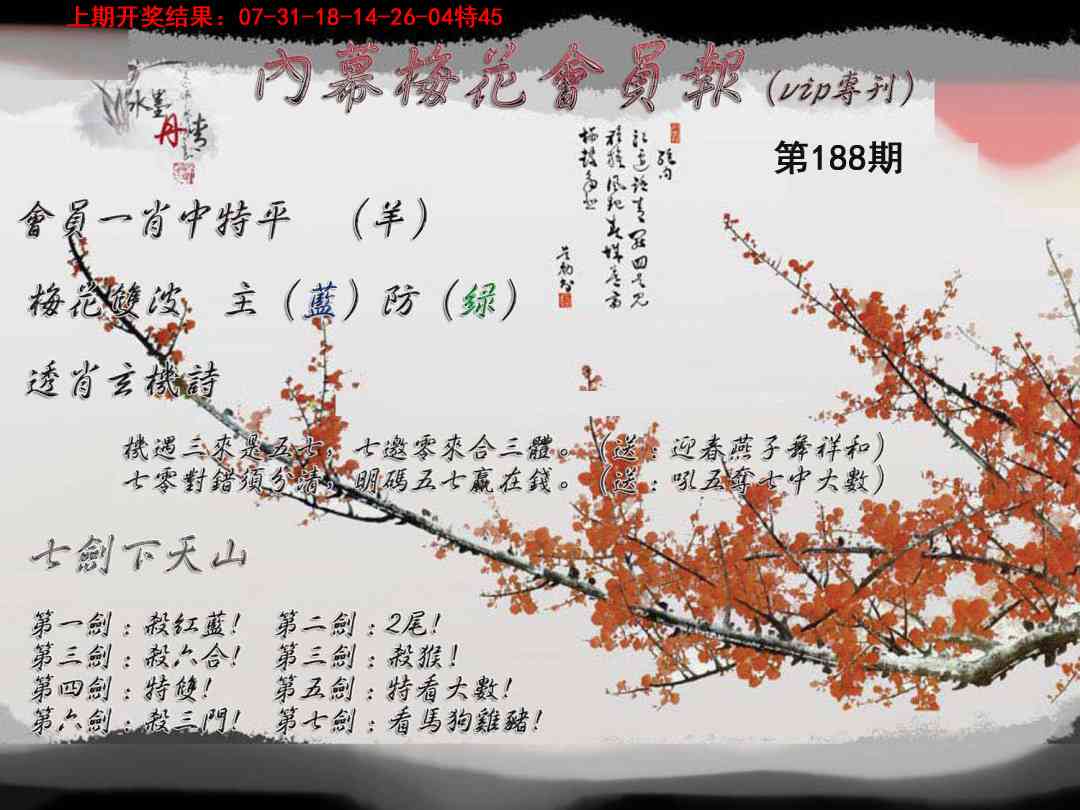 上期开奖结果：07-31-18-14-26-04特45
內幕梅花會員報（vip專刊）
水墨
丹情
第188期
會員一肖中特平　（羊）
梅花雙波　主（藍）防（緑）
透肖玄機詩
機遇三來是五七，七邀零來合三體。（送：迎春燕子舞祥和）
七零對錯須分清，明碼五七贏在錢。（送：吼五奪七中大數）
七劍下天山
第一劍：殺紅藍！　第二劍：2尾！
第三劍：殺六合！　第三劍：殺猴！
第四劍：特雙！　第五劍：特看大數！
第六劍：殺三門！　第七劍：看馬狗雞豬！